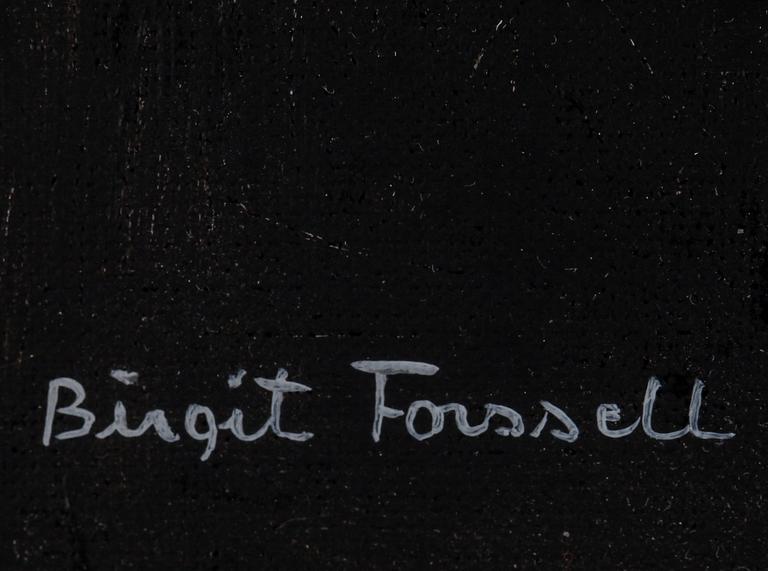 Birgit Forssell